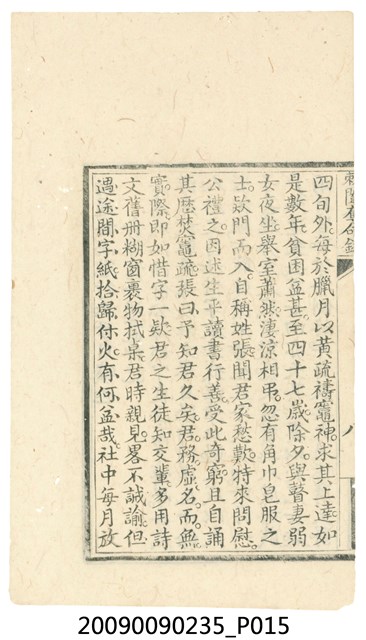 四旬外。每於臘月以黃疏禱竈神。求其上達如
是數年。貧困益甚。至四十七歲除夕。與瞽妻弱
女夜坐。舉室蕭然。淒涼相弔。忽有角巾皂服之
士。欵門而入。自稱姓張。聞君家愁歎。特來問慰。
公禮之。因述生平讀書行善。受此奇窮。且自誦
其歷焚竈疏。張曰。予知君久矣。君務虛名。而無
實際。即如惜字一欵。君之生徒知交輩多用詩
文舊冊糊窗裹物拭桌。君時親見。畧不誡諭。但
遇途間字紙。拾歸付火。有何益哉。社中每月放
八
20090090235_P015